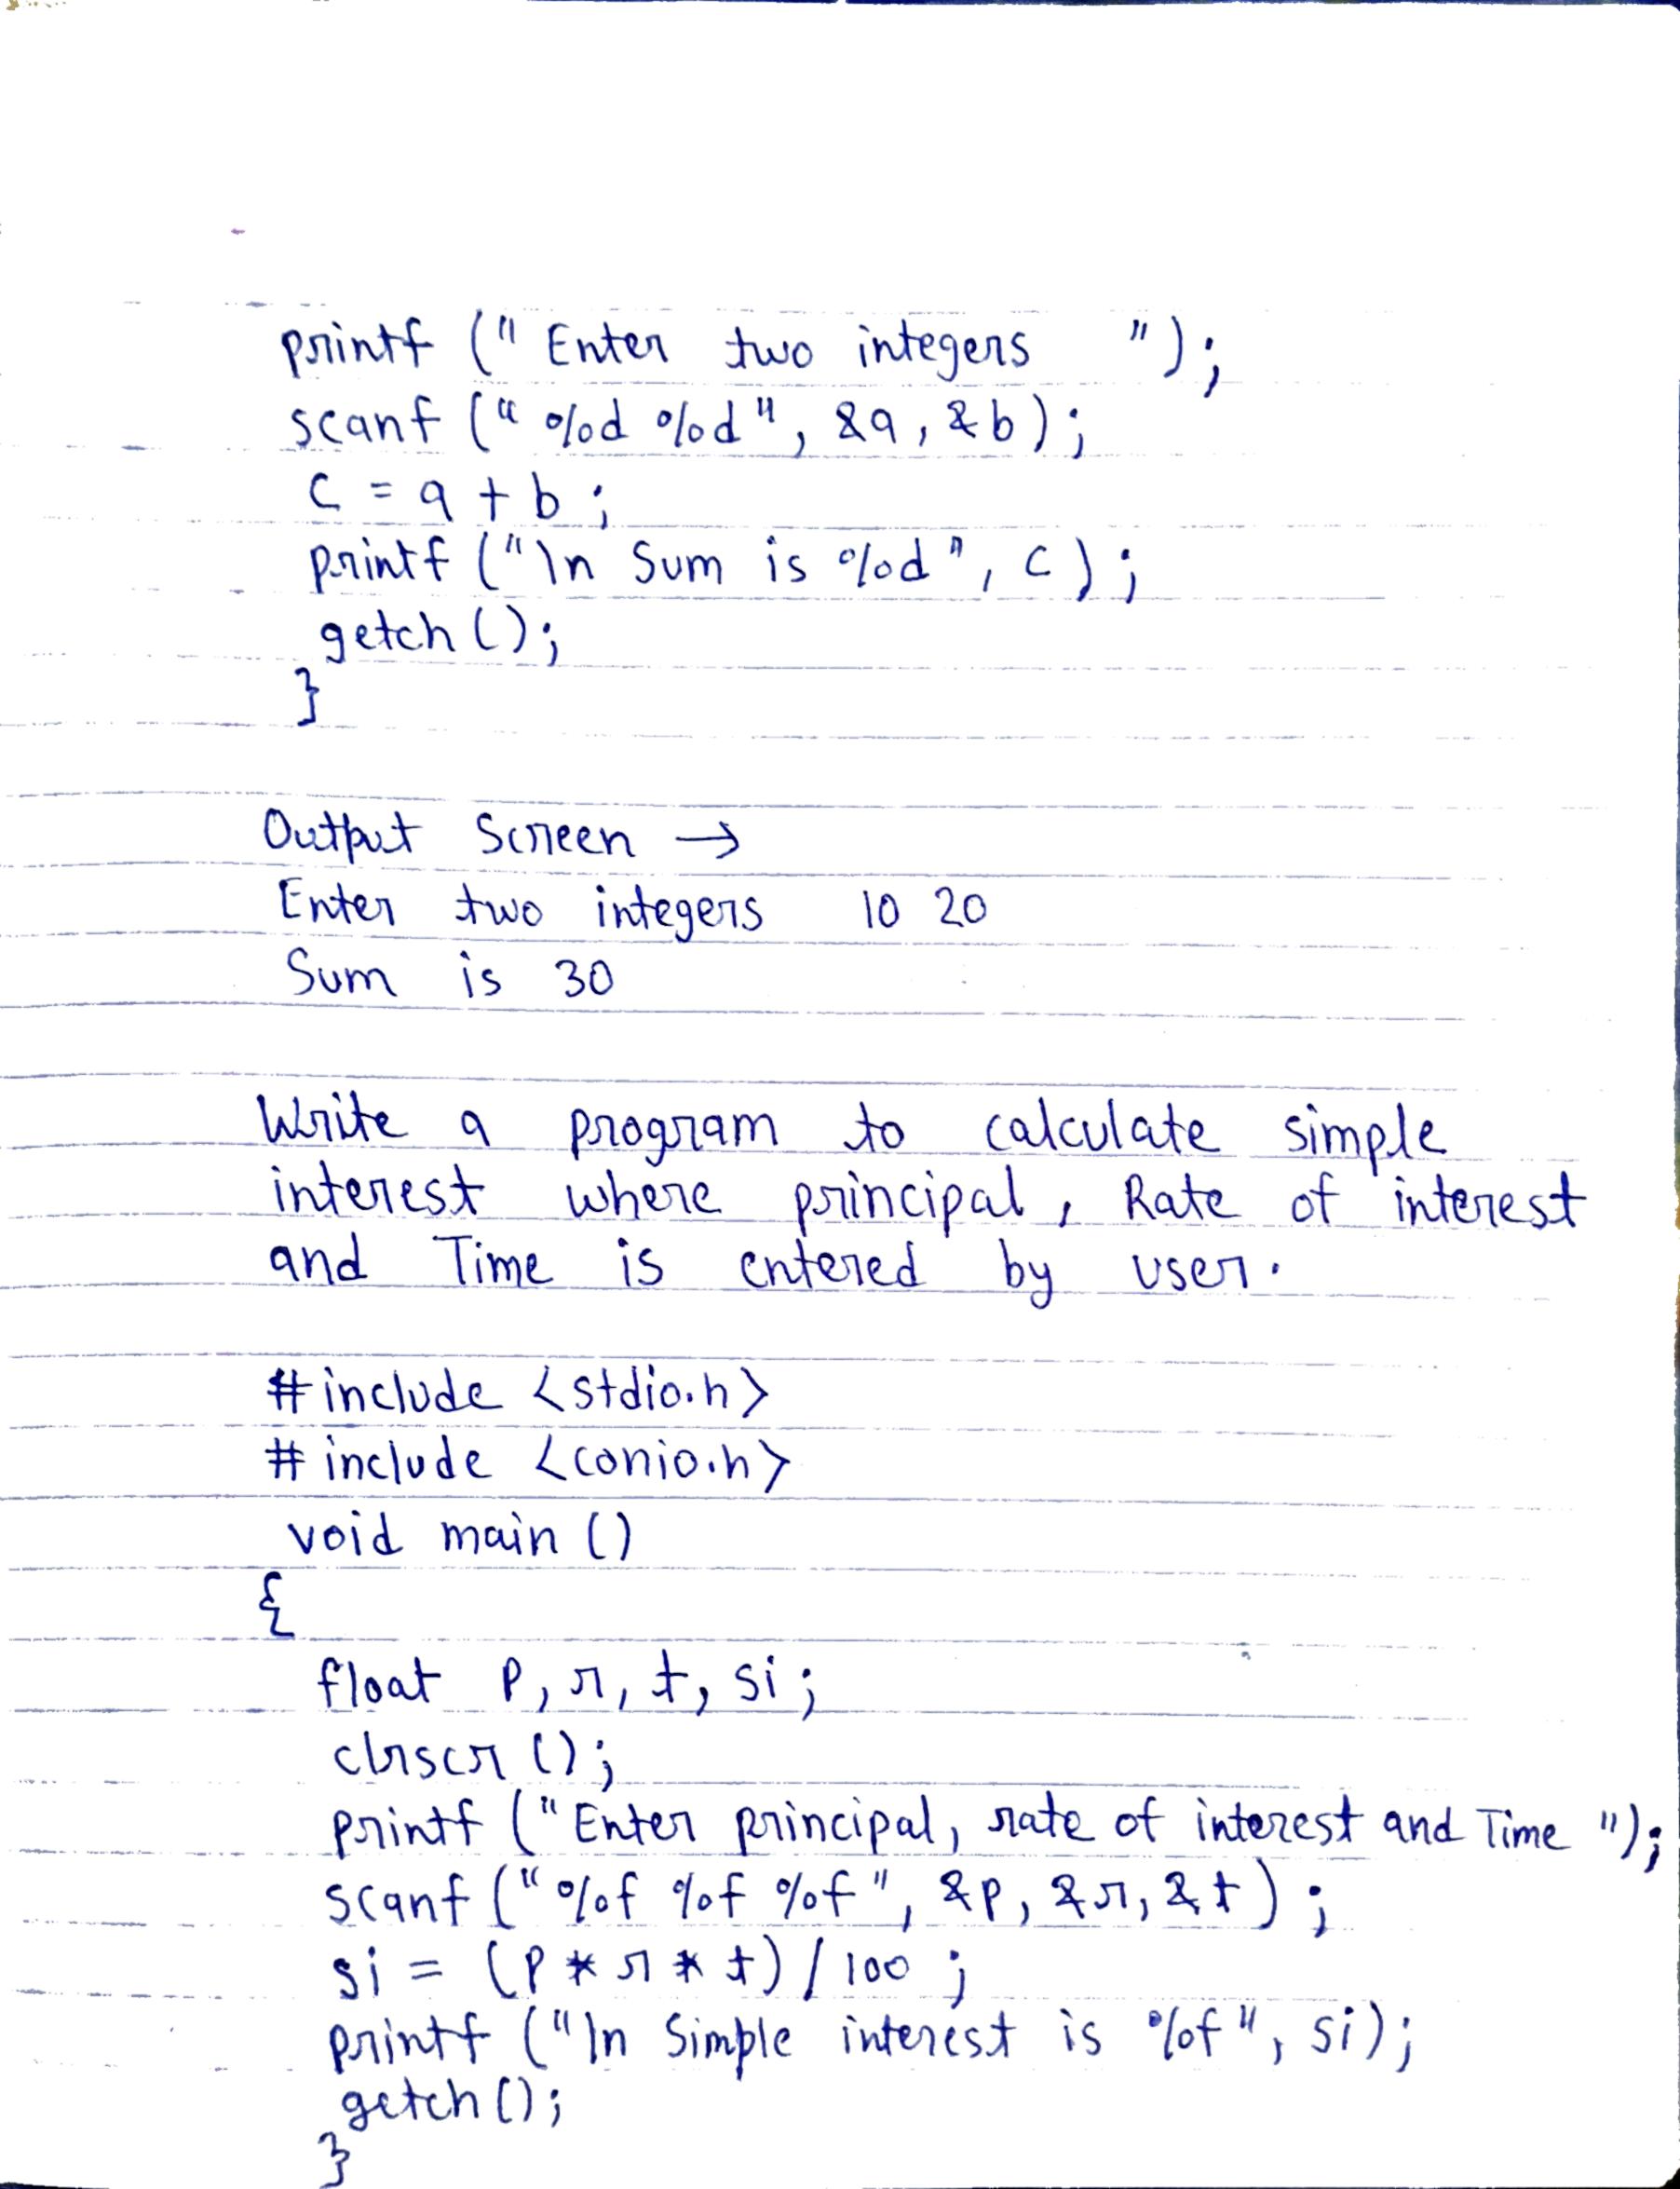 printf (" Enter two integers ");
scanf (" %d %d", &a, &b);
c = a + b ;
printf ("\n Sum is %d", c) ;
getch ();
}
Output Screen →
Enter two integers 10 20
Sum is 30
Write a program to calculate simple
interest where principal, Rate of interest
and Time is entered by user.
#include <stdio.h>
#include <conio.h>
void main ()
{
float p, r, t, si;
clrscr ();
printf ("Enter principal, rate of interest and Time ");
scanf ("%f %f %f", &p, &r, &t) ;
si = (p * r * t) / 100 ;
printf ("\n Simple interest is %f", si);
getch ();
}